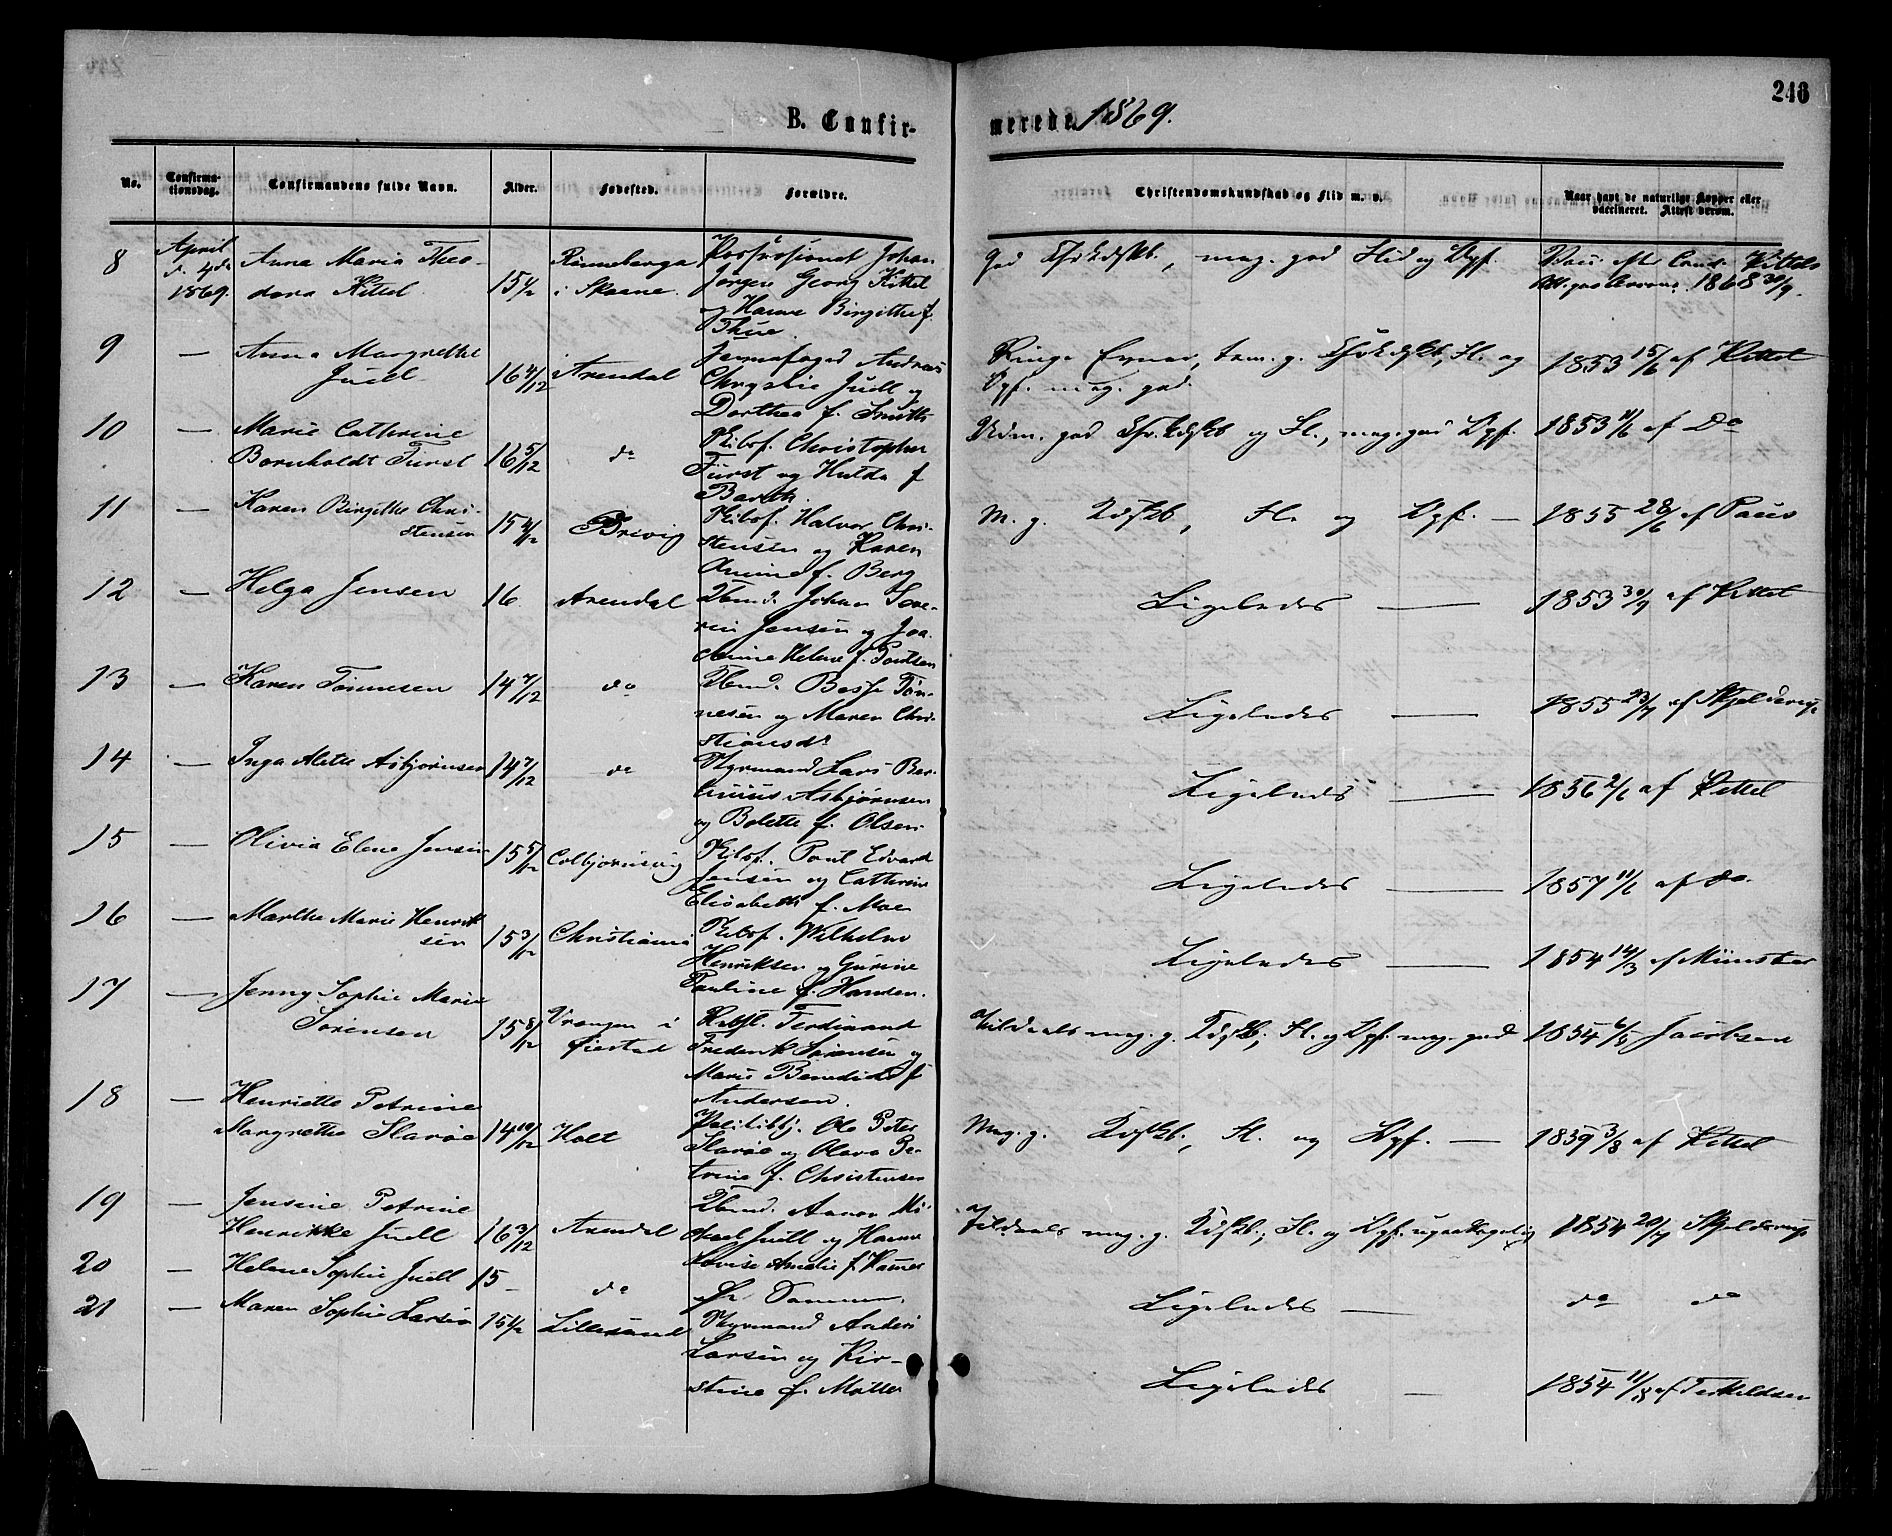 246
B. Confir-
merede 1869.
No.
Confirma-
tionsdag.
Confirmandens fulde Navn.
Alder.
Fødested.
Forældre.
Christendomskundskab og Flid m. v.
Naar havt de naturlige Kopper eller
vaccineret. Attest derom.
8
April
d. 4de
1869.
Anna Maria Theo-
dora Kittel
15½
Rönneberga
i Skaane.
Johan
Jørgen Georg Kittel
og Hanne Birgitte f.
Thue.
God Chr.kdskb., meg. god Flid og Opf.
Vacc. efter Kittels
1868 31/9.
9
—
Anna Margrethe
Juell
16 4/12
Arendal
Andreas
Chrystie Juell og
Dorthea f. Smith
Ringe Evner, tem. g. Chr.kdskb., Fl. og
Opf. meg. god.
1853 15/6 af Kittel
10
—
Marie Cathrine
Bornholdt Fürst
16 5/12
do
Skibsf. Christopher
Fürst og Hulda f
Barth.
Udm. god Chr.kdskb og Fl., meg. god Opf.
1853 11/6 af Do
11
—
Karen Birgitte Chri-
stensen
15 4/12
Brevig
Skibsf. Halvor Chri-
stensen og Karen
Anine f. Berg
M. g. Kdskb, Fl. og Opf. —
1855 28/6 af Paus
12
—
Helga Jensen
16
Arendal
Tbmd. Johan Seve-
rin Jensen og Joa-
chmine Helene f. Poulsen
Ligeledes —
1853 30/9 af Kittel
13
—
Karen Tønnesen
14 7/12
do
Tbmd. Tøn-
nesen og Maren Chri-
stiansdr
Ligeledes —
1855 23/7 af Skjelderup
14
—
Inga Alette Asbjørnsen
14 7/12
do
Styrmand Lars Ber-
Asbjørnsen
og Bolette f. Olsen.
Ligeledes —
1856 2/6 af Kittel
15
—
Olivia Elene Jensen
15 5/12
Colbjørnsvig
Skibsf. Poul Edvard
Jensen og Cathrine
Elisabeth f. Moe
Ligeledes —
1857 11/6 af do.
16
—
Marthe Marie Henrik
sen
15 3/12
Christiania
Skibsf. Wilhelm
Henriksen og Gurine
Pauline f. Hansen.
Ligeledes —
1854 14/3 af Münster
17
—
Jenny Sophie Marie
Sørensen
15 8/12
Vrengen i
Øiestad
Ferdinand
Frederik Sørensen og
Marie Benedicte f
Andersen.
Tildeels meg. g. Kdskb, Fl. og Opf. meg. god
1854 6/6 Jacobsen
18
—
Henriette Petrine
Margrethe Slarøe
14 10/12
Holt
Politibtj. Ole Peter
Slarøe og Olava Pe-
trine f. Christensen
Meg. g. Kdskb., Fl. og Opf. —
1859 3/8 af Kittel
19
—
Jensine Petrine
Henrikke Juell
16 3/12
Arendal
Tbmd. Mi-
chael Juell og Hanne
Lovise Amalie f. Hamer
Tildeels meg. g. Kdskb.; Fl. og Opf. upaaklagelig
1854 20/7 Skjelderup
20
—
Helene Sophie Juell
15 —
do
Ligeledes —
do do
21
—
Maren Sophie Larsen
15½
Lillesand
Styrmand Anders
Larsen og Kir-
stine f. Møller
Ligeledes —
1854 11/8 af Terkeldsen